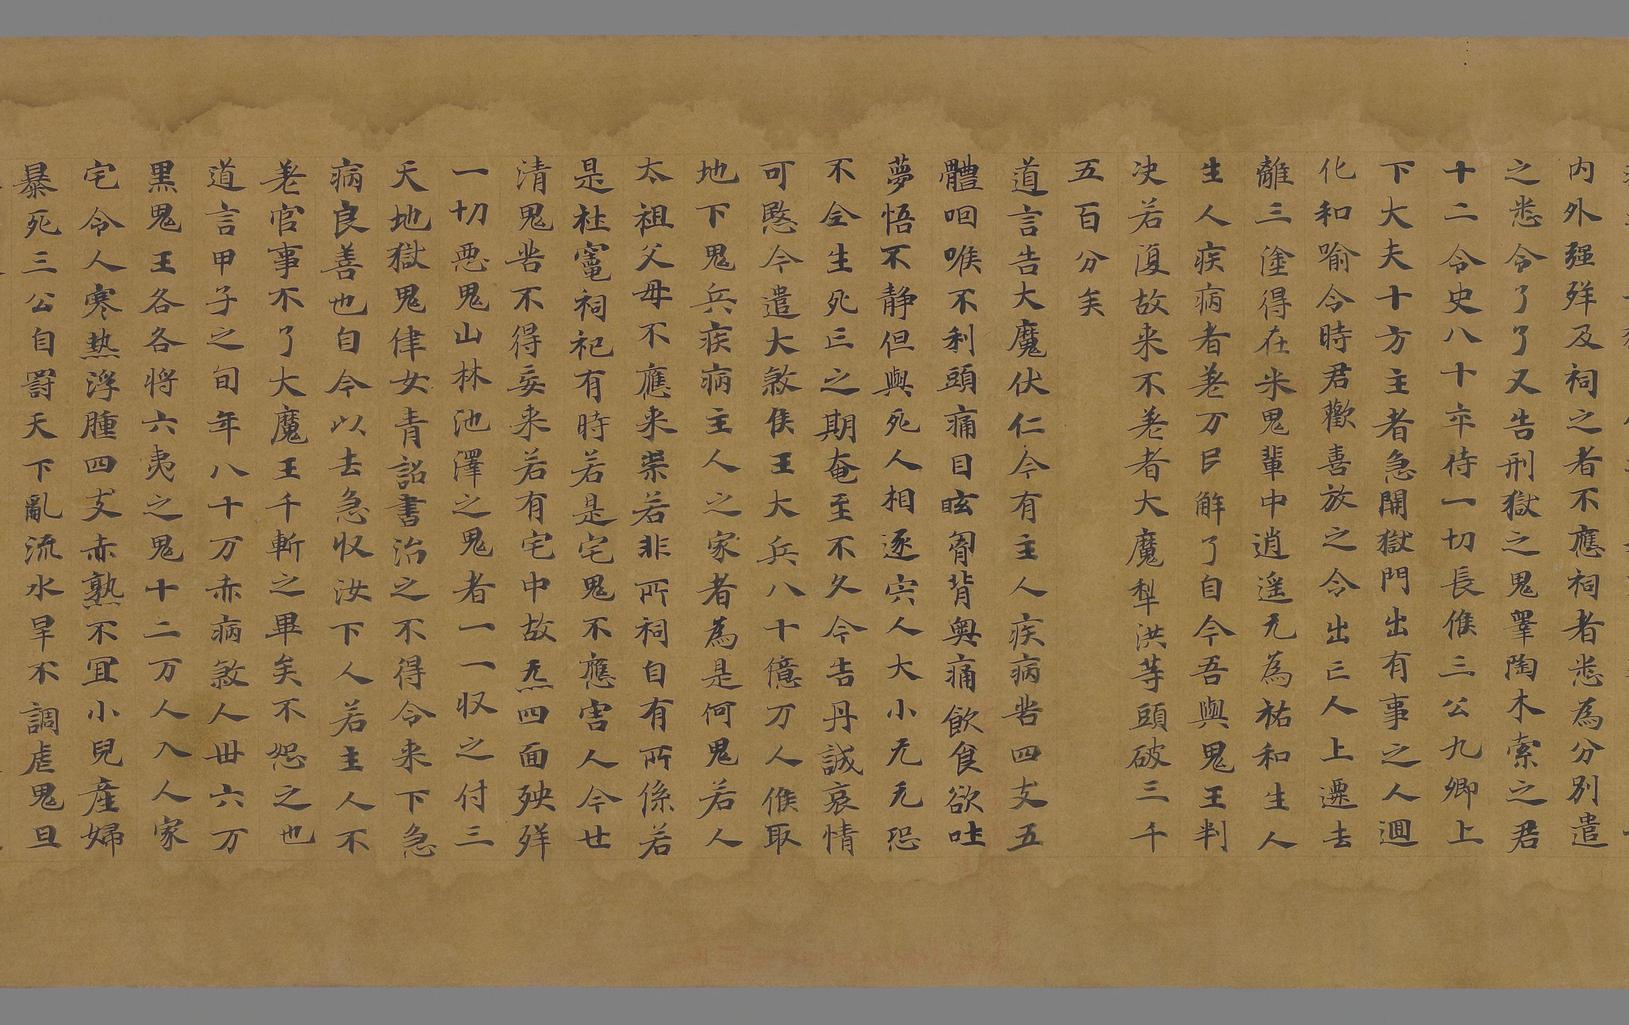 内外强殃及祠之者不應祠者悉為分別遣
之悉令了了又告刑獄之鬼鞏陶木索之君
十二令史八十卒侍一切長倠三公九卿上
下大夫十方主者急開獄門出有事之人週
化和喻令時君歡喜放之令出亡人上遷去
離三塗得在米鬼輩中逍遥无為祐和生人
生人疾病者差万目解了自今吾與鬼王判
决若復故来不差者大魔犁洪等頭破三千
五百分矣
道言告大魔伏仁今有主人疾病者四支五
體咽喉不利頭痛目眩胷背奧痛飲食欲吐
夢悟不静但與死人相逐宍人大小无无恐
不全生死亡之期奄至不久今告丹誠哀情
可愍今遣大煞侯王大兵八十億万人倠取
地下鬼兵疾病主人之家者為是何鬼若人
太祖父母不應来祟若非所祠自有所係若
是社竈祠祀有時若是宅鬼不應害人今世
清鬼皆不得妄来若有宅中故炁四面殃殃
一切惡鬼山林池澤之鬼者一一收之付三
天地獄鬼律女青詔書治之不得令来下急
病良善也自今以去急収汝下人若主人不
差官事不了大魔王千斬之畢矣不怨之也
道言甲子之旬年八十万赤病煞人丗六万
黒鬼王各各将六夷之鬼十二万人入人家
宅令人寒熱浮腫四支赤熟不宜小兒産婦
暴死三公自罸天下亂流水旱不調虐鬼旦